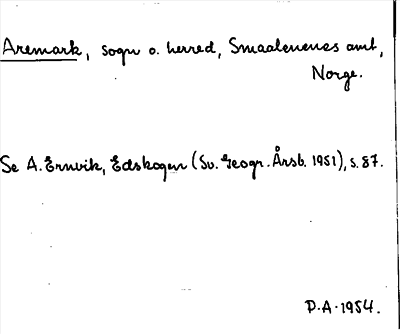 Aremark, sogn o. herred, Smaalenenes amt,
Norge.
Se A. Ernvik, Edskogen (Sv. Geogr. Årsb. 1951), s. 87.
D.A. 1954.